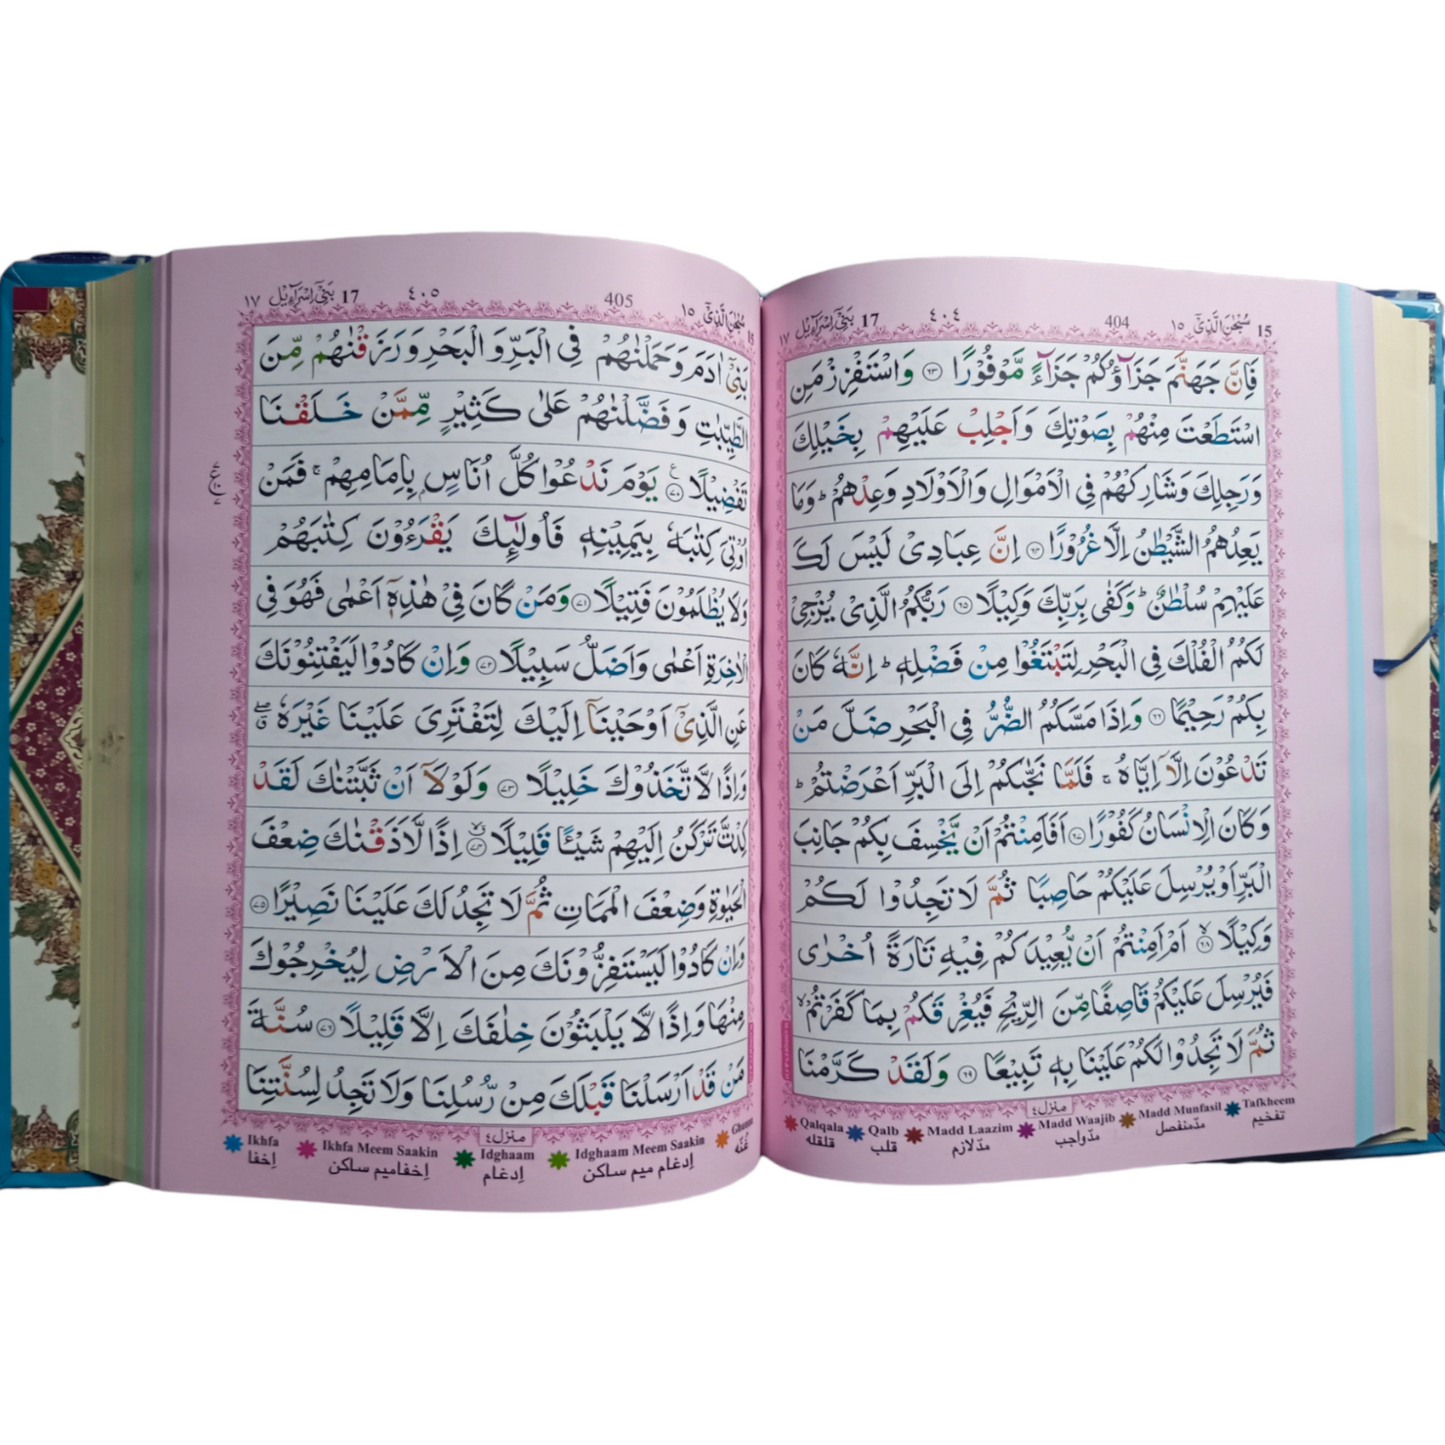 15 سُبْحٰنَ الَّذِیْۤ ١٥ 404 ٤٠٤ 17 بَنِیْۤ اِسْرَآءِیْل ١٧
فَاِنَّ جَهَنَّمَ جَزَآؤُكُمْ جَزَآءً مَّوْفُوْرًا ﴿٦٣﴾ وَاسْتَفْزِزْ مَنِ
اسْتَطَعْتَ مِنْهُمْ بِصَوْتِكَ وَاَجْلِبْ عَلَیْهِمْ بِخَیْلِكَ
وَرَجِلِكَ وَشَارِكْهُمْ فِی الْاَمْوَالِ وَالْاَوْلَادِ وَعِدْهُمْ ؕ وَمَا
یَعِدُهُمُ الشَّیْطٰنُ اِلَّا غُرُوْرًا ﴿٦٤﴾ اِنَّ عِبَادِیْ لَیْسَ لَكَ
عَلَیْهِمْ سُلْطٰنٌ ؕ وَكَفٰی بِرَبِّكَ وَكِیْلًا ﴿٦٥﴾ رَبُّكُمُ الَّذِیْ یُزْجِیْ
لَكُمُ الْفُلْكَ فِی الْبَحْرِ لِتَبْتَغُوْا مِنْ فَضْلِهٖ ؕ اِنَّهٗ كَانَ
بِكُمْ رَحِیْمًا ﴿٦٦﴾ وَاِذَا مَسَّكُمُ الضُّرُّ فِی الْبَحْرِ ضَلَّ مَنْ
تَدْعُوْنَ اِلَّاۤ اِیَّاهُ ۚ فَلَمَّا نَجّٰىكُمْ اِلَی الْبَرِّ اَعْرَضْتُمْ ؕ
وَكَانَ الْاِنْسَانُ كَفُوْرًا ﴿٦٧﴾ اَفَاَمِنْتُمْ اَنْ یَّخْسِفَ بِكُمْ جَانِبَ
الْبَرِّ اَوْ یُرْسِلَ عَلَیْكُمْ حَاصِبًا ثُمَّ لَا تَجِدُوْا لَكُمْ
وَكِیْلًا ۙ﴿٦٨﴾ اَمْ اَمِنْتُمْ اَنْ یُّعِیْدَكُمْ فِیْهِ تَارَةً اُخْرٰی
فَیُرْسِلَ عَلَیْكُمْ قَاصِفًا مِّنَ الرِّیْحِ فَیُغْرِقَكُمْ بِمَا كَفَرْتُمْ ۙ
ثُمَّ لَا تَجِدُوْا لَكُمْ عَلَیْنَا بِهٖ تَبِیْعًا ﴿٦٩﴾ وَلَقَدْ كَرَّمْنَا
منزل ٤
Qalqala Qalb Madd Laazim Madd Waajib Madd Munfasil Tafkheem
قلقله قلب مدّلازم مدّواجب مدّمنفصل تفخیم
15 سُبْحٰنَ الَّذِیْۤ ١٥ 405 ٤٠٥ 17 بَنِیْۤ اِسْرَآءِیْل ١٧
بَنِیْۤ اٰدَمَ وَحَمَلْنٰهُمْ فِی الْبَرِّ وَالْبَحْرِ وَرَزَقْنٰهُمْ مِّنَ
الطَّیِّبٰتِ وَفَضَّلْنٰهُمْ عَلٰی كَثِیْرٍ مِّمَّنْ خَلَقْنَا
تَفْضِیْلًا ﴿٧٠﴾ یَوْمَ نَدْعُوْا كُلَّ اُنَاسٍۭ بِاِمَامِهِمْ ۚ فَمَنْ
اُوْتِیَ كِتٰبَهٗ بِیَمِیْنِهٖ فَاُولٰٓئِكَ یَقْرَءُوْنَ كِتٰبَهُمْ
وَلَا یُظْلَمُوْنَ فَتِیْلًا ﴿٧١﴾ وَمَنْ كَانَ فِیْ هٰذِهٖۤ اَعْمٰی فَهُوَ فِی
الْاٰخِرَةِ اَعْمٰی وَاَضَلُّ سَبِیْلًا ﴿٧٢﴾ وَاِنْ كَادُوْا لَیَفْتِنُوْنَكَ
عَنِ الَّذِیْۤ اَوْحَیْنَاۤ اِلَیْكَ لِتَفْتَرِیَ عَلَیْنَا غَیْرَهٗ ۖۗ
وَاِذًا لَّاتَّخَذُوْكَ خَلِیْلًا ﴿٧٣﴾ وَلَوْلَاۤ اَنْ ثَبَّتْنٰكَ لَقَدْ
كِدْتَّ تَرْكَنُ اِلَیْهِمْ شَیْـًٔا قَلِیْلًا ﴿٧٤﴾ اِذًا لَّاَذَقْنٰكَ ضِعْفَ
الْحَیٰوةِ وَضِعْفَ الْمَمَاتِ ثُمَّ لَا تَجِدُ لَكَ عَلَیْنَا نَصِیْرًا ﴿٧٥﴾
وَاِنْ كَادُوْا لَیَسْتَفِزُّوْنَكَ مِنَ الْاَرْضِ لِیُخْرِجُوْكَ
مِنْهَا وَاِذًا لَّا یَلْبَثُوْنَ خِلٰفَكَ اِلَّا قَلِیْلًا ﴿٧٦﴾ سُنَّةَ
مَنْ قَدْ اَرْسَلْنَا قَبْلَكَ مِنْ رُّسُلِنَا وَلَا تَجِدُ لِسُنَّتِنَا
منزل ٤
Ikhfa Ikhfa Meem Saakin Idghaam Idghaam Meem Saakin Ghunna
اِخفا اِخفامیم ساکن اِدغام اِدغام میم ساکن غُنّه